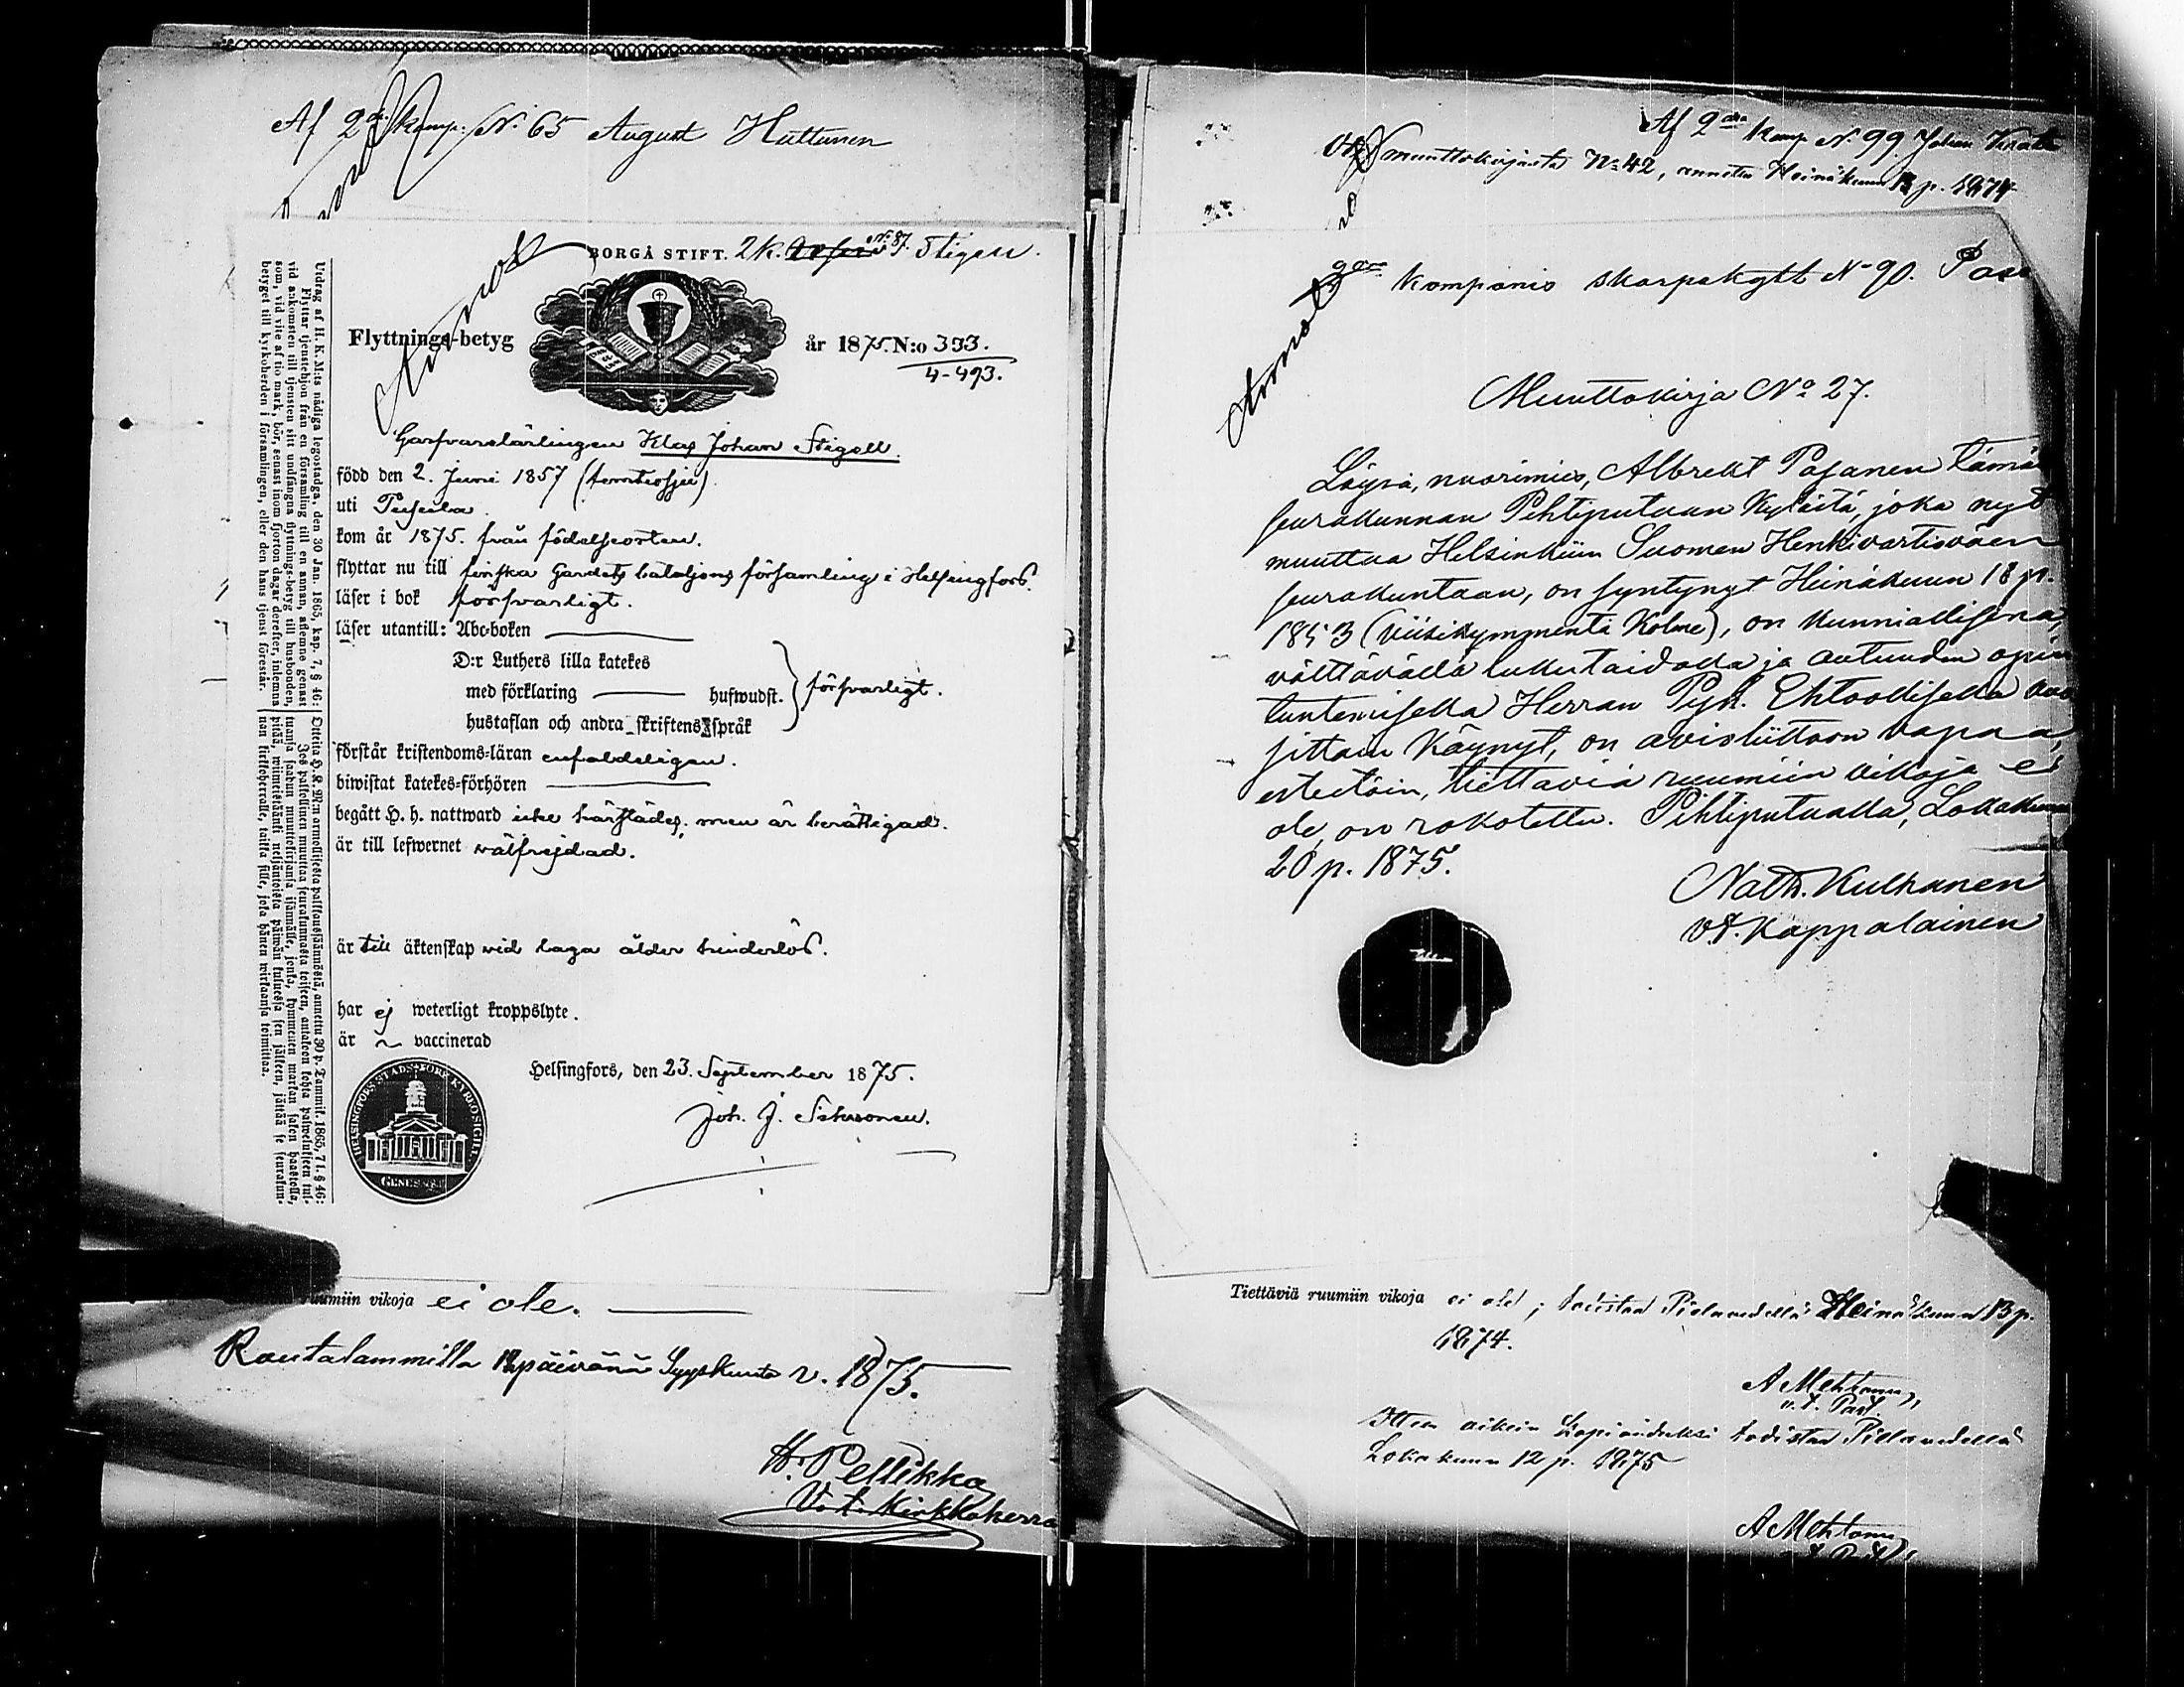 Af 2dra Komp. No 65 August Huttunen
BORGÅ STIFT. 2 K. No 87. Stigell.
Flyttnings-betyg år 1875. N:o 393.
4-493.
Garfvarelärlingen Klas Johan Stigell.
född den 2. Juni 1857 (femtiosju)
uti Pusula.
kom år 1875. från födelseorten.
flyttar nu till finska Gardets bataljons församling i Helsingfors.
läser i bok försvarligt.
läser utantill: Abc-boken
D:r Luthers lilla katekes
med förklaring hufwudst. försvarligt.
hustaflan och andra skriftens språk
förstår kristendoms-läran enfaldeligen.
biwistat katekes-förhören
begått H. h. nattward icke härstädes; men är berättigad.
är till lefwernet välfrejdad.
är till äktenskap vid laga ålder hinderlös.
har ej weterligt kroppslyte.
är vaccinerad
Helsingfors, den 23. September 1875.
Joh. J.
HELSINGFORS STADS FÖRS. KYRKO SIGILL.
Utdrag af H. K. M:ts nådiga legostadga, den 30 Jan. 1865, kap. 7, § 46:
Flyttar tjenstehjon från en församling till en annan, aflemne genast
vid ankomsten till tjensten sitt undfångna flyttnings-betyg till husbonden,
som, vid vite af tio mark, bör, senast inom fjorton dagar derefter, inlemna
betyget till kyrkoherden i församlingen, eller den hans tjenst förestår.
Otteita H. K. M:n armollisesta palkkaussäännöstä, annettu 30 p. Tammik. 1865, 7 l. § 46:
Jos palkollinen muuttaa seurakunnasta toiseen, antakoon kohta palwelukseen tul-
tuansa saadun muuttokirjansa isännälle, jonka, kymmenen markan sakon haastolla,
pitää, wiimeistäänki neljäntoista päiwän kuluessa sen jälkeen, jättää se seurakun-
nan kirkkoherralle, taikka sille, joka hänen wirkaansa toimittaa.
ruumiin vikoja ei ole.
Rautalammilla päivänä Syyskuuta v. 1875.
H. Pellikka
V. t. Kirkkoherra
Af 2dra Komp No 99 Johan
muuttokirjasta No 42, annettu Heinäkuun 13 p. 1874
2dra Kompanie skarpskytt No 90.
Muuttokirja No 27.
Löysä, nuorimies, Albrekt Pasanen tämän
seurakunnan Pihtiputaan Kylästä, joka nyt
muuttaa Helsinkiin Suomen Henkivartioväen
seurakuntaan, on syntynyt Heinäkuun 18 p.
1853 (viisikymmentä Kolme), on kunniallisena,
välttävällä lukutaidolla ja autuuden opin
tuntemisella Herran Pyh. Ehtoollisella
sittain Käynyt, on avioliittoon vapaa,
esteetöin, tiettäviä ruumiin vikoja ei
ole, on rokotettu. Pihtiputaalla, Lokakuun
20 p. 1875.
Nath. Kulhanen
v.t. Kappalainen
Tiettäviä ruumiin vikoja ei ole; todistaa Pielavedellä Heinäkuun 13 p.
1874.
A Mehtonen
v. t. Past.
todistaa Pielavedellä
Lokakuun 12 p. 1875
A Mehtonen